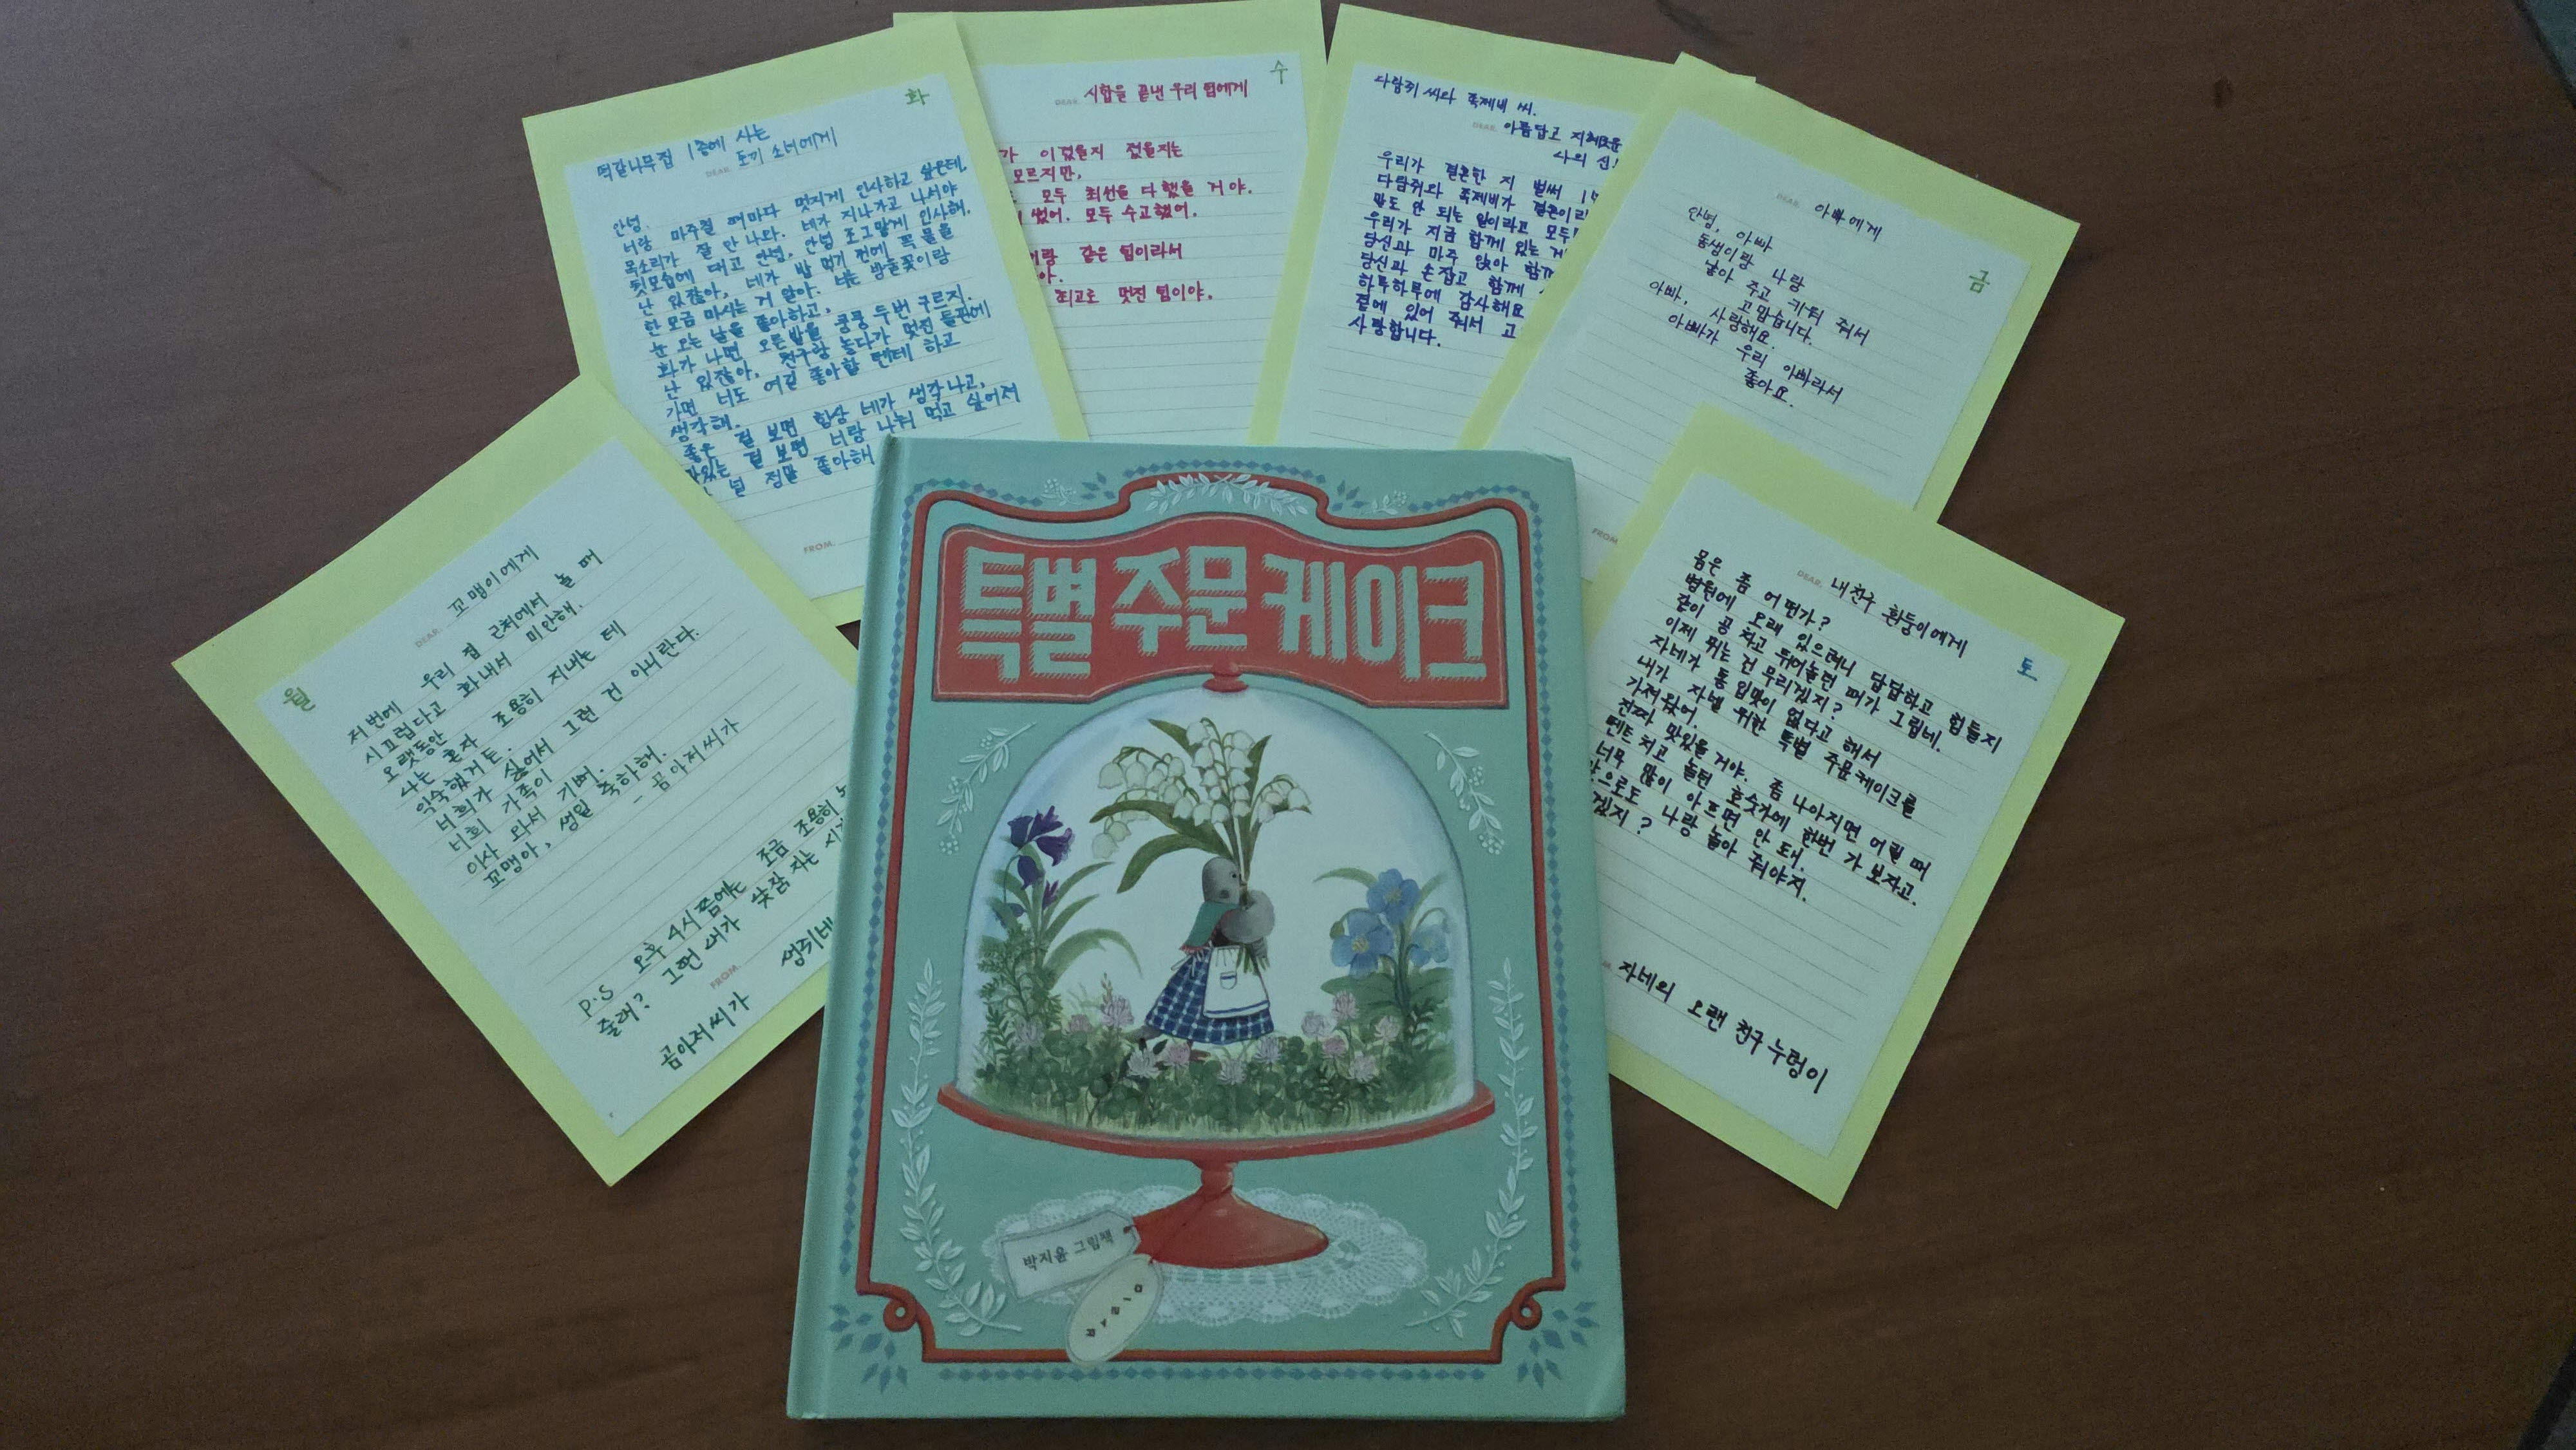 월
DEAR. 꼬맹이에게
저번에 우리 집 근처에서 놀 때
시끄럽다고 화내서 미안해.
오랫동안
나는 혼자 조용히 지내는 데
익숙했거든.
너희가 싫어서 그런 건 아니란다.
너희 가족이
이사 와서 기뻐.
꼬맹아, 생일 축하해.
- 곰아저씨가
P.S 오후 4시쯤에는 조금 조용히
줄래? 그땐 내가 낮잠 자는
FROM.
곰아저씨가
화
떡갈나무집 1층에 사는
DEAR. 토끼 소녀에게
안녕.
너랑 마주칠 때마다 멋지게 인사하고 싶은데,
목소리가 잘 안 나와. 네가 지나가고 나서야
뒷모습에 대고 안녕, 안녕 조그맣게 인사해.
난 있잖아, 네가 밥 먹기 전에 꼭 물을
한 모금 마시는 거 알아. 너는 방울꽃이랑
눈 오는 날을 좋아하고,
화가 나면 오른발을 쿵쿵 두번 구르지.
난 있잖아, 친구랑 놀다가 멋진 들판에
가면 너도 여길 좋아할 텐데 하고
생각해.
좋은 걸 보면 항상 네가 생각나고,
맛있는 걸 보면 너랑 나눠 먹고 싶어져
널 정말 좋아해
FROM.
수
DEAR. 시합을 끝낸 우리 팀에게
가 이겼을지 졌을지는
모르지만,
모두 최선을 다했을 거야.
썼어. 모두 수고했어.
같은 팀이라서
최고로 멋진 팀이야.
다람쥐 씨와 족제비 씨.
DEAR. 아름답고 지혜로운
우리가 결혼한 지 벌써
다람쥐와 족제비가 결혼이라
말도 안 되는 일이라고 모두
우리가 지금 함께 있는
당신과 마주 앉아 함께
당신과 손잡고 함께
하루하루에 감사해요
곁에 있어 줘서
사랑합니다.
금
DEAR. 아빠에게
안녕, 아빠
동생이랑 나랑
낳아 주고 키워 줘서
고맙습니다.
아빠, 사랑해요.
아빠가 우리 아빠라서
좋아요.
FROM.
토
DEAR. 내친구 흰둥이에게
몸은 좀 어떤가?
병원에 오래 있으려니 답답하고 힘들지
같이 공 차고 뛰어놀던 때가 그립네.
이제 뛰는 건 무리겠지?
자네가 통 입맛이 없다고 해서
내가 자넬 위한 특별 주문케이크를
가져왔어.
진짜 맛있을 거야. 좀 나아지면 어릴 때
텐트 치고 놀던 호숫가에 한번 가 보자고.
너무 많이 아프면 안 돼.
앞으로도 나랑 놀아 줘야지.
겠지?
자네의 오랜 친구 누렁이
특별 주문 케이크
박지윤 그림책